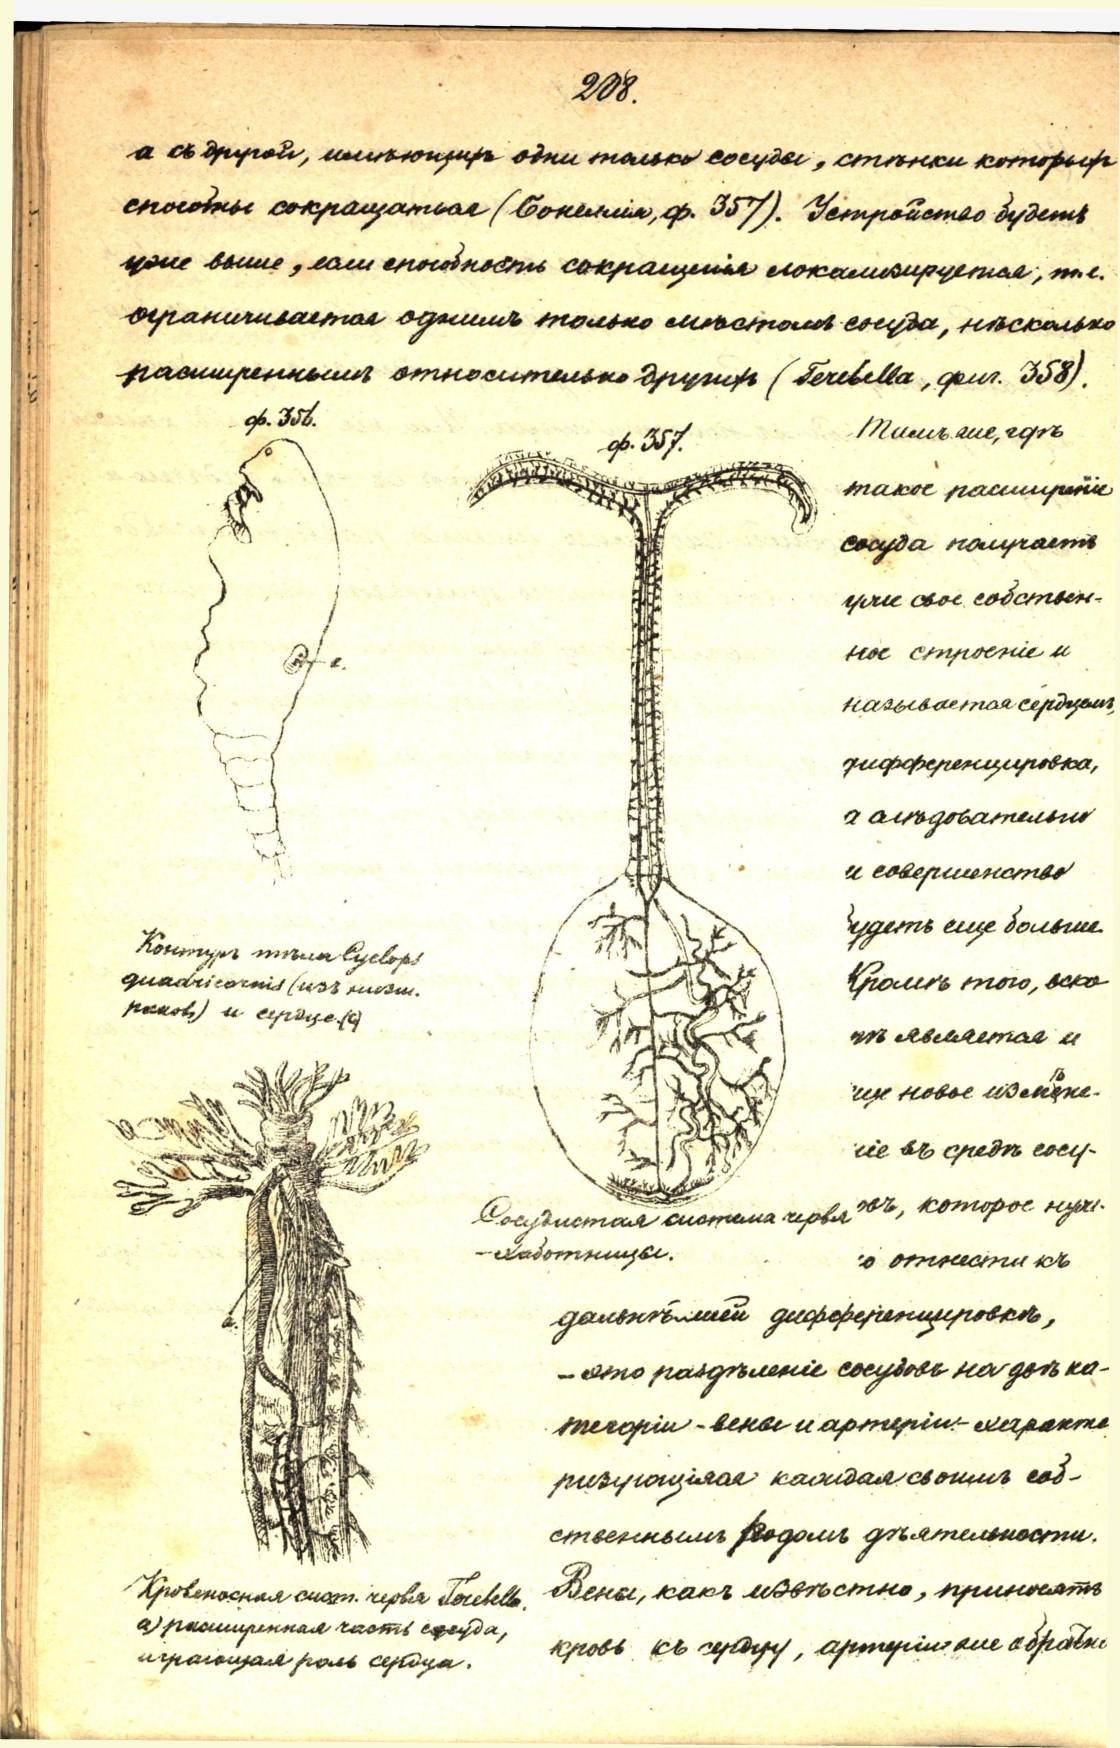 208.
а съ другой, имѣющихъ одни только сосуды, стѣнки которыхъ
способны сокращаться (Бонеллія, ф. 357). Устройство будетъ
уже выше, если способность сокращенія локализируется, т.е.
ограничивается однимъ только мѣстомъ сосуда, нѣсколько
расширеннымъ относительно другихъ (Terebella, фиг. 358).
ф. 356.
ф. 357.
c.
Контуръ тѣла Cyclops
quadricornis (изъ низш.
раковъ) и сердце (c)
Сосудистая система червя
-хоботницы.
a.
Кровеносная сист. червя Terebella.
а) расширенная часть сосуда,
играющая роль сердца.
Тамъ же, гдѣ
такое расширеніе
сосуда получаетъ
уже свое собствен-
ное строеніе и
называется сердцемъ,
дифференцировка,
а слѣдовательно
и совершенство
будетъ еще больше.
Кромѣ того, вско
рѣ является и
еще новое измѣне-
ніе въ средѣ сосу-
довъ, которое нуж-
но отнести къ
дальнѣйшей дифференцировкѣ,
- это раздѣленіе сосудовъ на двѣ ка-
тегоріи - вены и артеріи - характе
ризующіяся каждая своимъ соб-
ственнымъ родомъ дѣятельности.
Вены, какъ извѣстно, приносятъ
кровь къ сердцу, артеріи же обратно